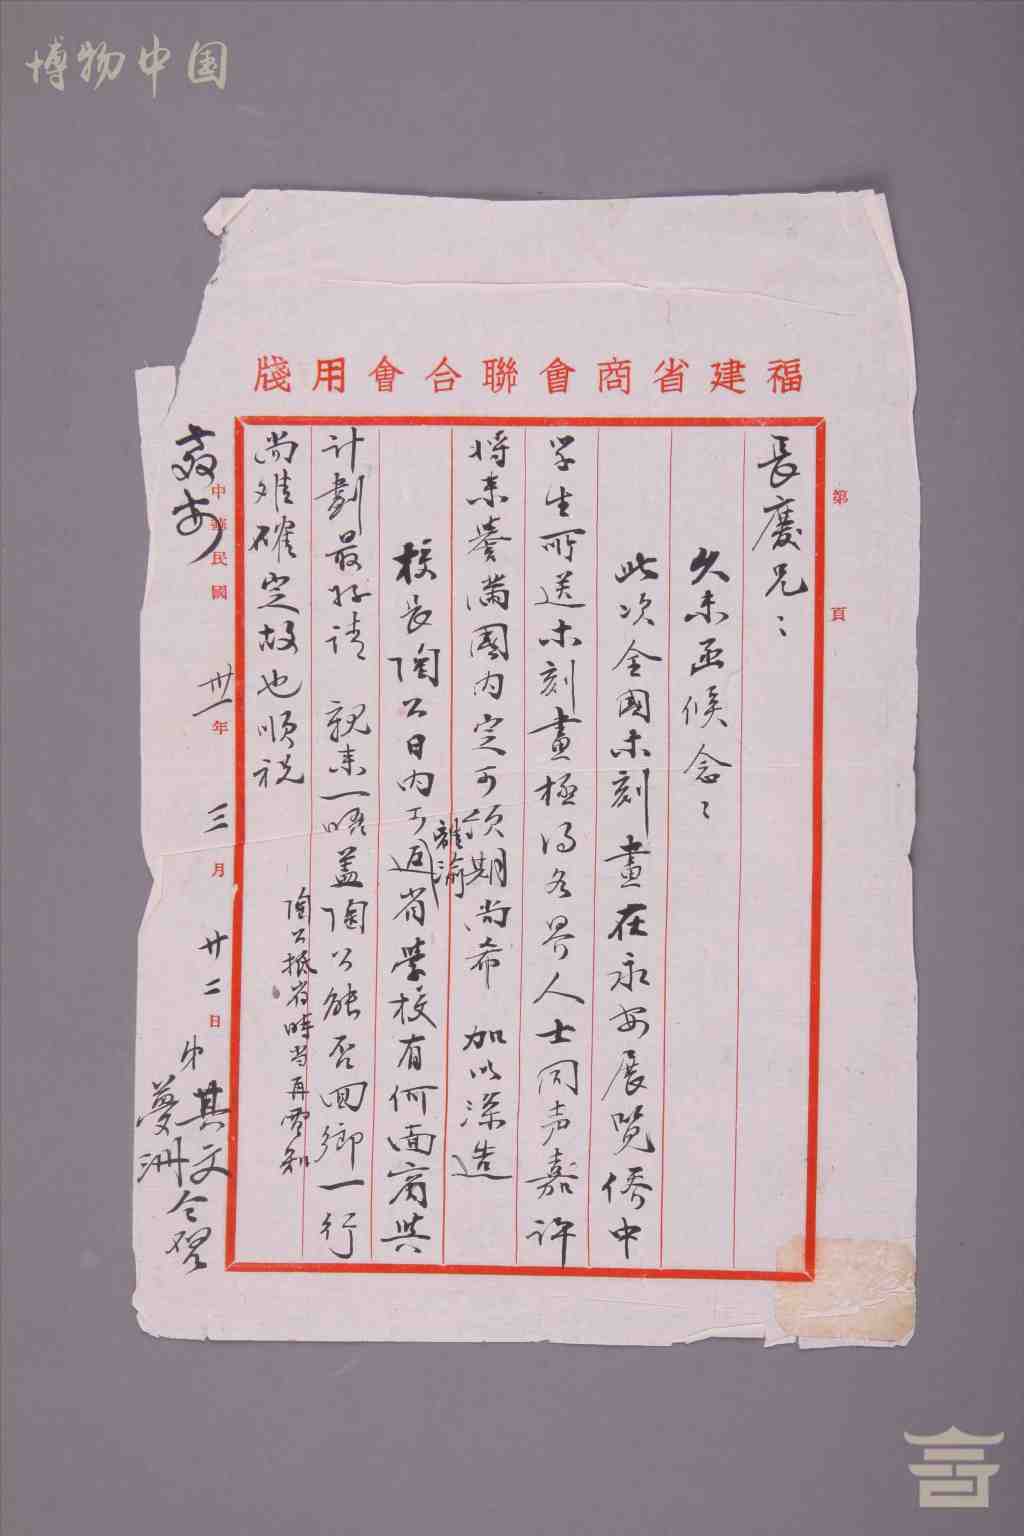 博物中国
福建省商會聯合會用牋
第 頁
長慶兄：
久未函候念念
此次全國木刻畫在永安展覽僑中
学生所送木刻畫極得各界人士同声嘉许
将来誉满國内定可预期尚希 加以深造
校長陶公日内可離渝返省學校有何面商与
计劃最好请 親来一晤盖陶公能否回鄉一行
尚难確定故也順祝
陶公抵省時当再電知
教安
中華民國卅一年三月廿二日
弟 其文
夢洲 仝啓